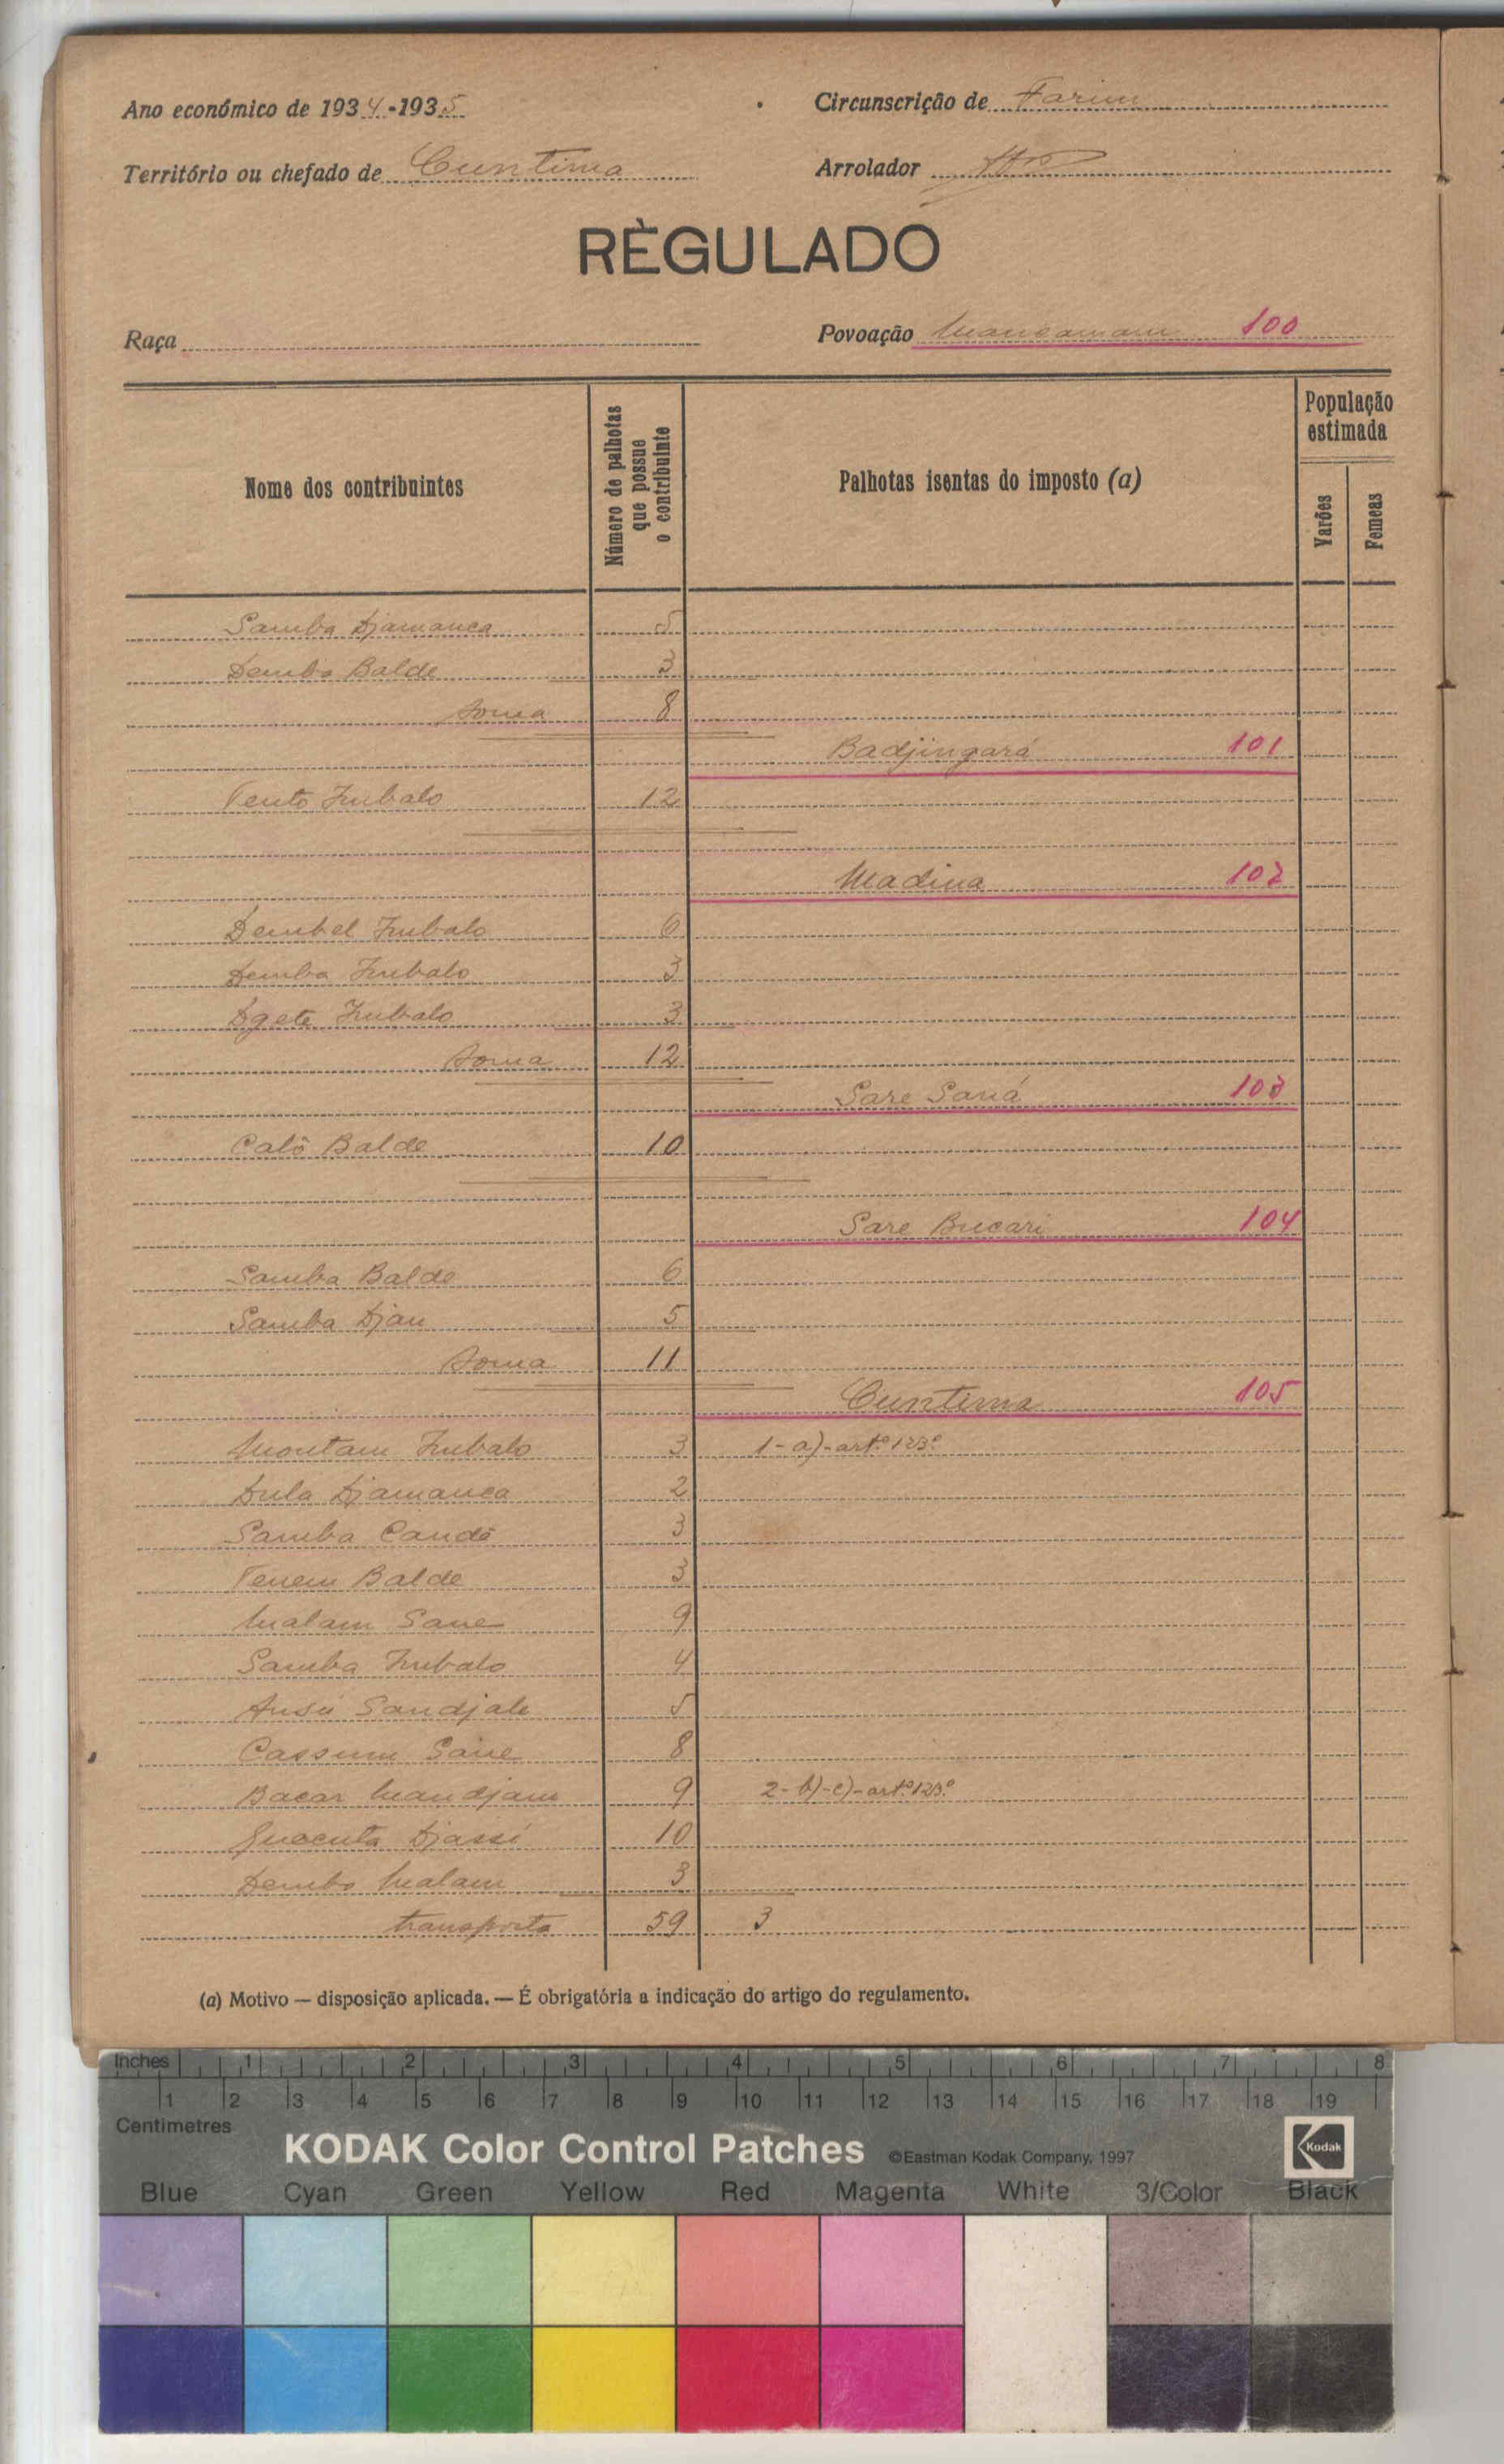 Ano económico de 1934-1935
Circunscrição de Farim
Território ou chefado de Cuntima
Arrolador
RÈGULADO
Raça
Povoação 100
Nome dos contribuintes
Número de palhotas que possue o contribuinte
Palhotas isentas do imposto (a)
População estimada
Varões
Femeas
Samba Djamanca 5
Dembo Balde 3
Soma 8
Badjingará 101
Tento Embalo 12
Madina 102
Dembel Embalo 6
Demba Embalo 3
Embalo 3
Soma 12
Sare Saná 103
Calô Balde 10
Sare Bucari 104
Samba Balde 6
Samba Djau 5
Soma 11
Cuntima 105
Embalo 3 1-a)-artº 123º
Dula Djamanca 2
Samba Candé 3
Tenem Balde 3
Malam Sane 9
Samba Embalo 4
Ansú Sandjale 5
Cassum Sane 8
Bacar Mandjam 9 2-b)-c)-artº 123º
Quecuta Djassi 10
Dembo Malam 3
transporte 59 3
(a) Motivo — disposição aplicada. — É obrigatória a indicação do artigo do regulamento.
Inches 1 2 3 4 5 6 7 8
1 2 3 4 5 6 7 8 9 10 11 12 13 14 15 16 17 18 19
Centimetres
KODAK Color Control Patches ©Eastman Kodak Company, 1997 Kodak
Blue Cyan Green Yellow Red Magenta White 3/Color Black